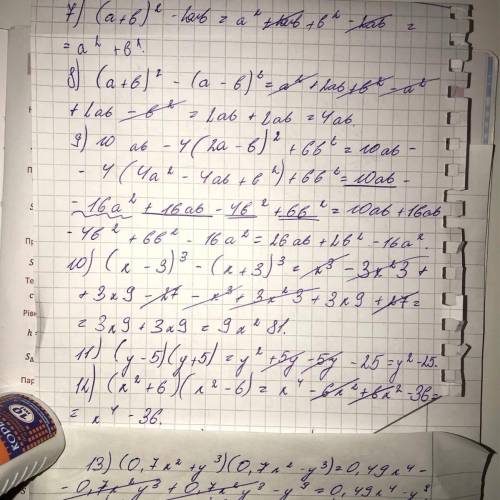 7) (a+b)² - 2ab = a² + 2ab + b² - 2ab =
= a² + b².
8) (a+b)² - (a-b)² = a² + 2ab + b² - a²
+ 2ab - b² = 2ab + 2ab = 4ab.
9) 10 ab - 4(2a-b)² + 6b² = 10ab -
- 4(4a² - 4ab + b²) + 6b² = 10ab -
- 16a² + 16ab - 4b² + 6b² = 10ab + 16ab
- 4b² + 6b² - 16a² = 26ab + 2b² - 16a².
10) (x-3)³ - (x+3)³ = x³ - 3x²3 +
+ 3x9 - 27 - x³ + 3x²3 + 3x9 + 27 =
= 3x9 + 3x9 = 9x² 81.
11) (y-5)(y+5) = y² + 5y - 5y - 25 = y² - 25.
12) (x²+6)(x²-6) = x⁴ - 6x² + 6x² - 36 =
= x⁴ - 36.
13) (0,7x² + y³)(0,7x² - y³) = 0,49x⁴ -
- 0,7x²y³ + 0,7x²y³ - y⁹ = 0,49x⁴ - y⁹